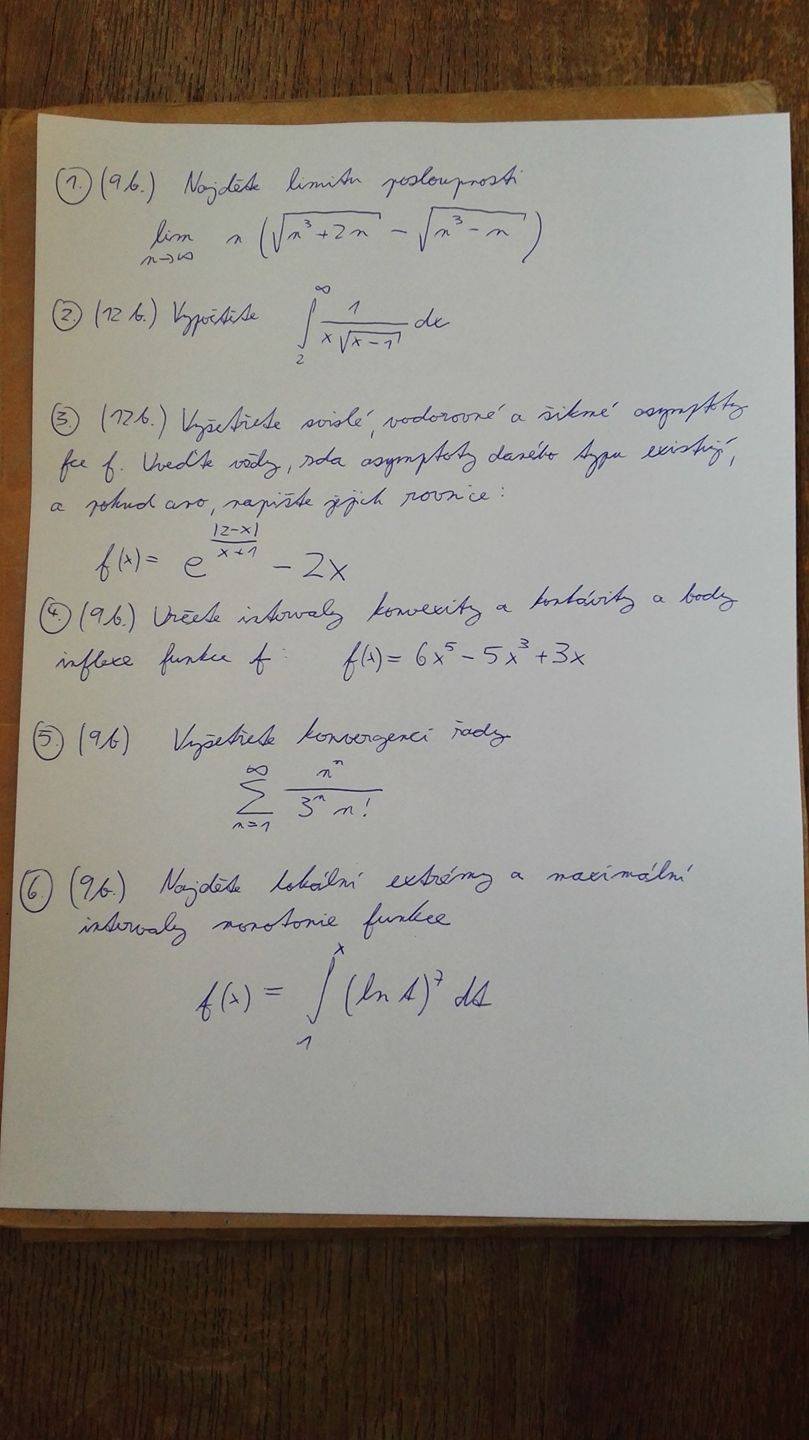 1. (9b.) Najděte limitu posloupnosti
lim n→∞ n (√(n³+2n) − √(n³−n))
2. (12b.) Vypočtěte ∫₂^∞ 1/(x√(x−1)) dx
3. (12b.) Vyšetřete svislé, vodorovné a šikmé asymptoty
fce f. Uveďte vždy, zda asymptoty daného typu existují,
a pokud ano, napište jejich rovnice:
f(x) = e^(|2−x|/(x+1)) − 2x
4. (9b.) Určete intervaly konvexity a konkávity a body
inflexe funkce f: f(x) = 6x⁵ − 5x³ + 3x
5. (9b) Vyšetřete konvergenci řady
∑_{n=1}^∞ nⁿ/(3ⁿ n!)
6. (9b.) Najděte lokální extrémy a maximální
intervaly monotonie funkce
f(x) = ∫₁^x (ln t)⁷ dt